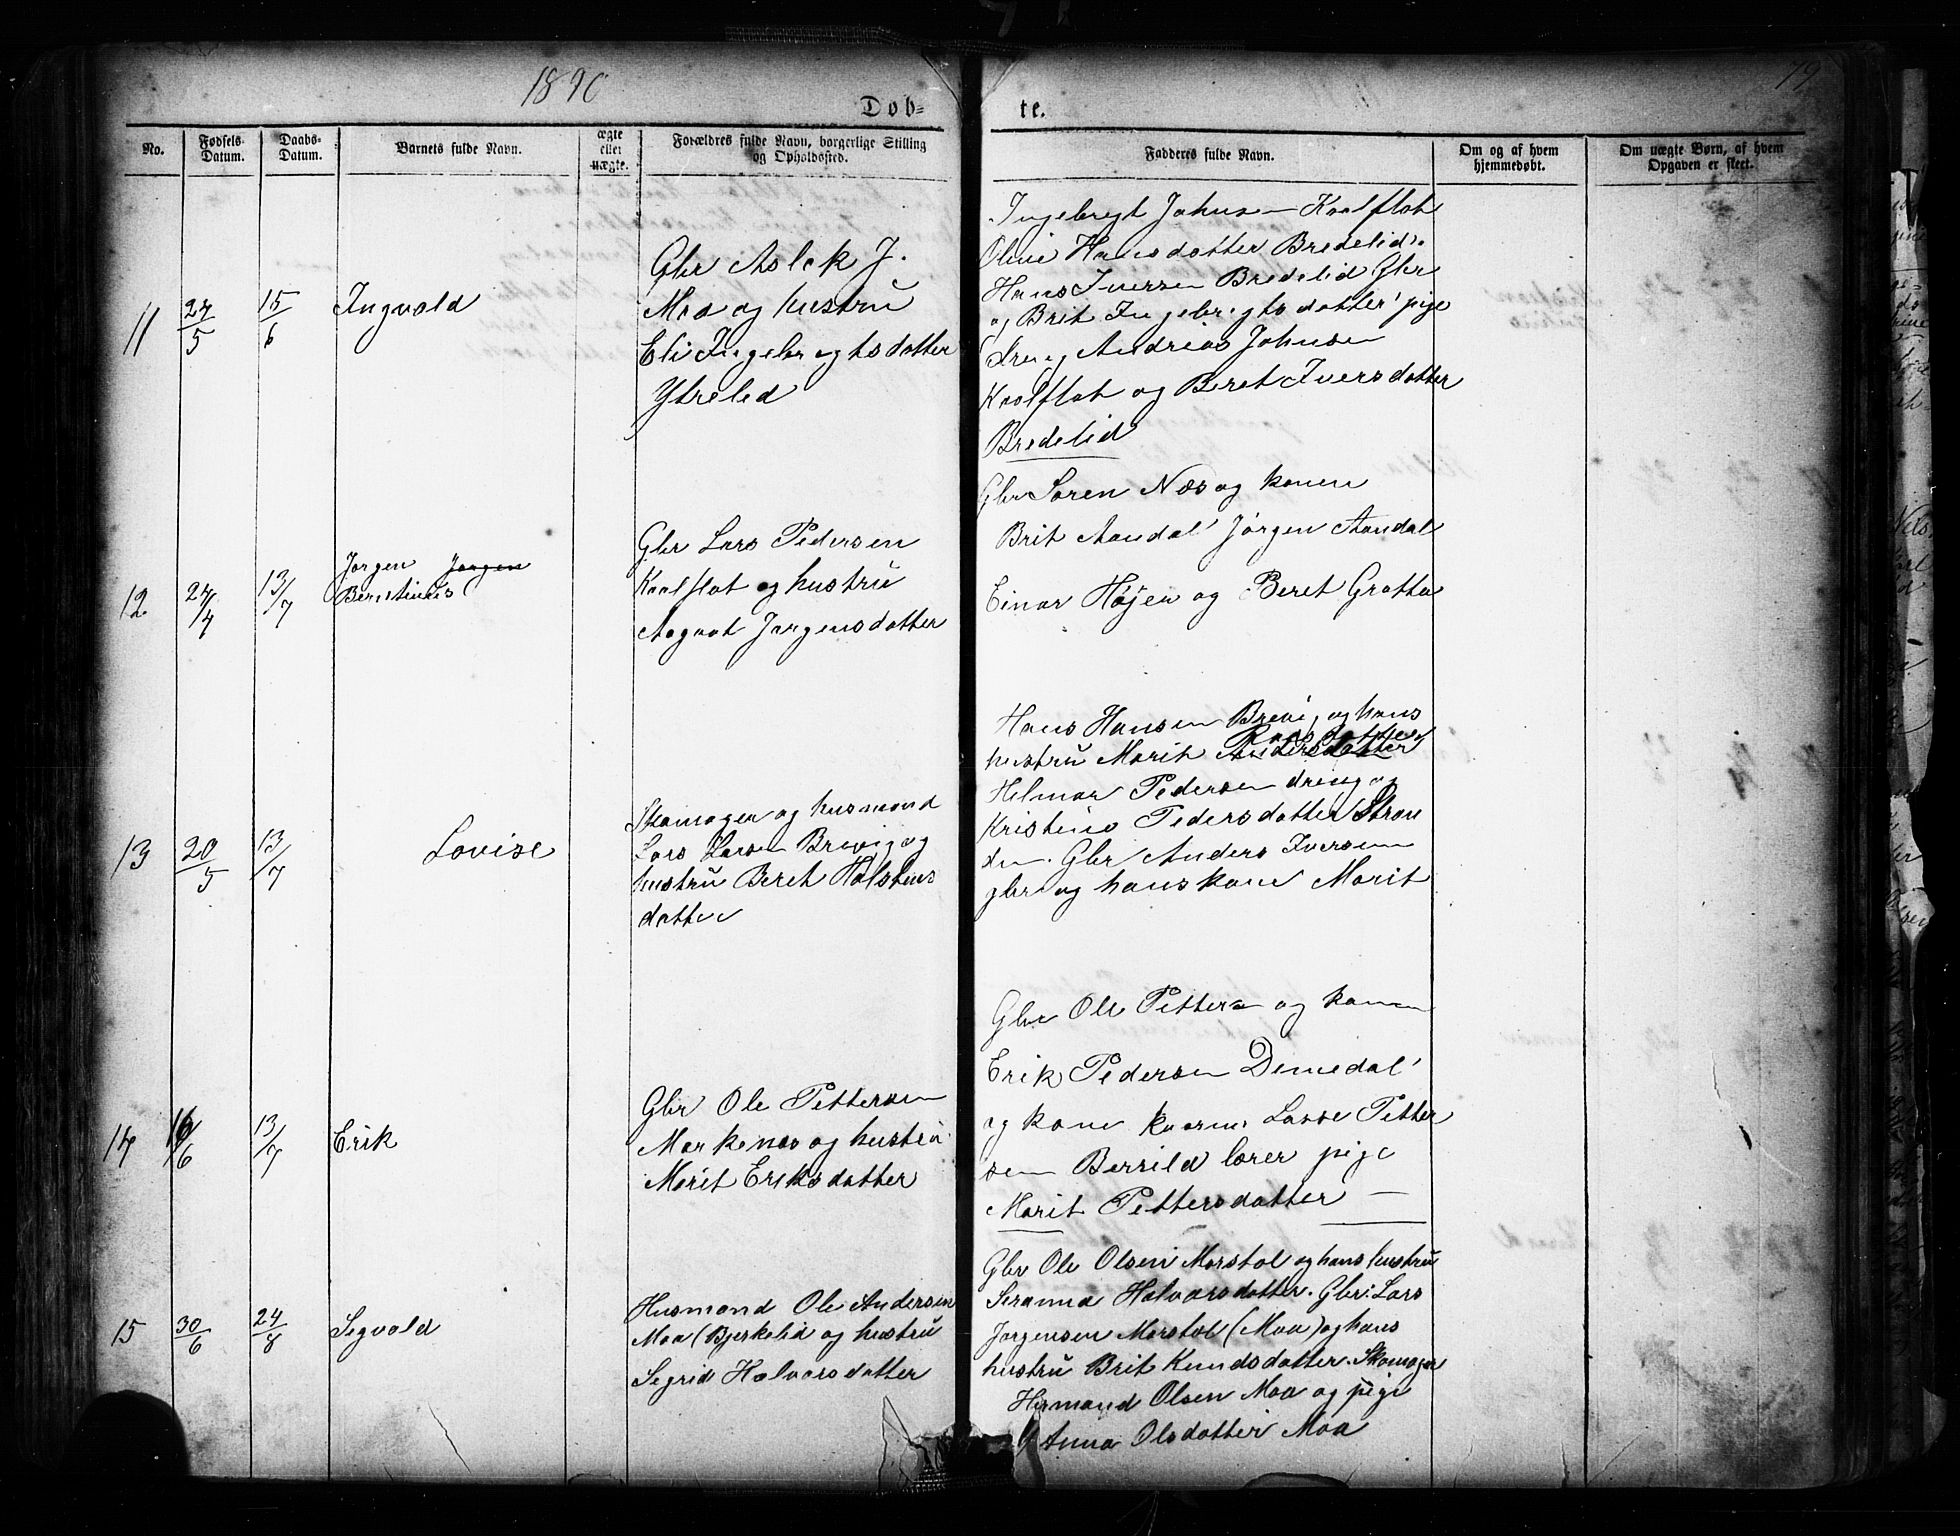 1890
79
Døb-
te.
No.
Fødsels-
Datum.
Daabs-
Datum.
Barnets fulde Navn.
ægte
eller
uægte.
Forældres fulde Navn, borgerlige Stilling
og Opholdssted.
Faddernes fulde Navn.
Om og af hvem
hjemmedøbt.
Om uægte Børn, af hvem
Opgaven er skeet.
11
24/5
15/6
Ingvald
Gbr Aslak J.
Moa og hustru
Eli Ingebrigtsdatter
Ytrelid
Ingebrigt Johnsen Kaalflot
Oline Hansdatter Bredelid
Hans Iversen Bredelid Gbr
og Brit Ingebrigtsdatter pige
Dreng Andreas Johnsen
Kaalflot og Beret Iversdatter
Bredelid
12
24/4
13/7
Jørgen Jørgen
Berntinus
Gbr Lars Pedersen
Kaalflot og hustru
Aagaat Jørgensdatter
Gbr Søren Næs og konen
Brit Aandal Jørgen Aandal
Einar Højen og Beret Grotta
13
20/5
13/7
Lovise
Skomager og husmand
Lars Larsen Brevig og
hustru Beret Holstens
datter
Hans Hansen Brevig og hans
hustru Marit Andersdatter
Helmar Pedersen dreng og
Kristine Pedersdatter Stran
den. Gbr Anders Iversen
gbr og hans kone Marit
14
16/6
13/7
Erik
Gbr Ole Pettersen
Morkenæs og hustru
Marit Eriksdatter
Gbr Ole Petters og konen
Erik Pedersen Demedal
og kone Lasse Petter
sen Berrild lærer pige
Marit Pettersdatter
15
30/6
24/8
Segvald
Husmand Ole Andersen
Moa (Bjerkelid og hustru
Segrid Halvorsdatter
Gbr Ole Olsen Morstøl og hans hustru
Seranna Halvorsdatter. Gbr: Lars
Jørgensen Morstøl (Moa) og hans
hustru Brit Knudsdatter. Skomager
Hermand Olsen Moa og pige
Anna Olsdatter Moa